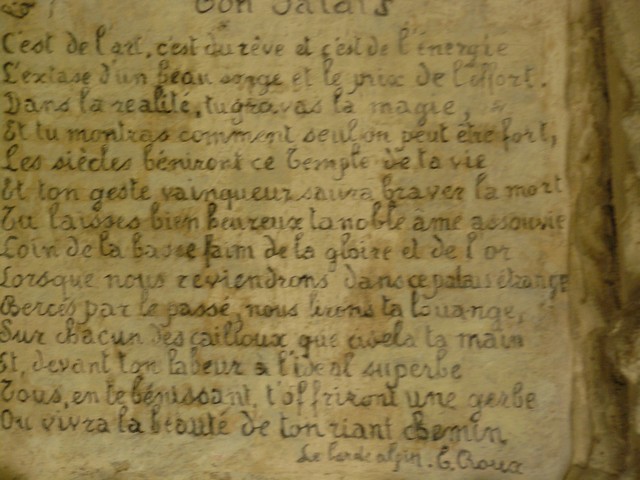 Ton Palais
C'est de l'art, c'est du rêve et c'est de l'énergie
L'extase d'un beau songe et le prix de l'effort.
Dans la realité, tu gravas la magie,
Et tu montras comment seul on peut être fort,
Les siècles béniront ce Temple de ta vie
Et ton geste vainqueur saura braver la mort
Tu laisses bien heureux ta noble âme assouvie
Loin de la basse faim de la gloire et de l'or
Lorsque nous reviendrons dans ce palais étrange
Bercés par le passé, nous lirons ta louange,
Sur chacun des cailloux que cisela ta main
Et, devant ton labeur à l'idéal superbe
Tous, en te bénissant, t'offriront une gerbe
Ou vivra la beauté de ton riant chemin
Le barde alpin. E. Roux